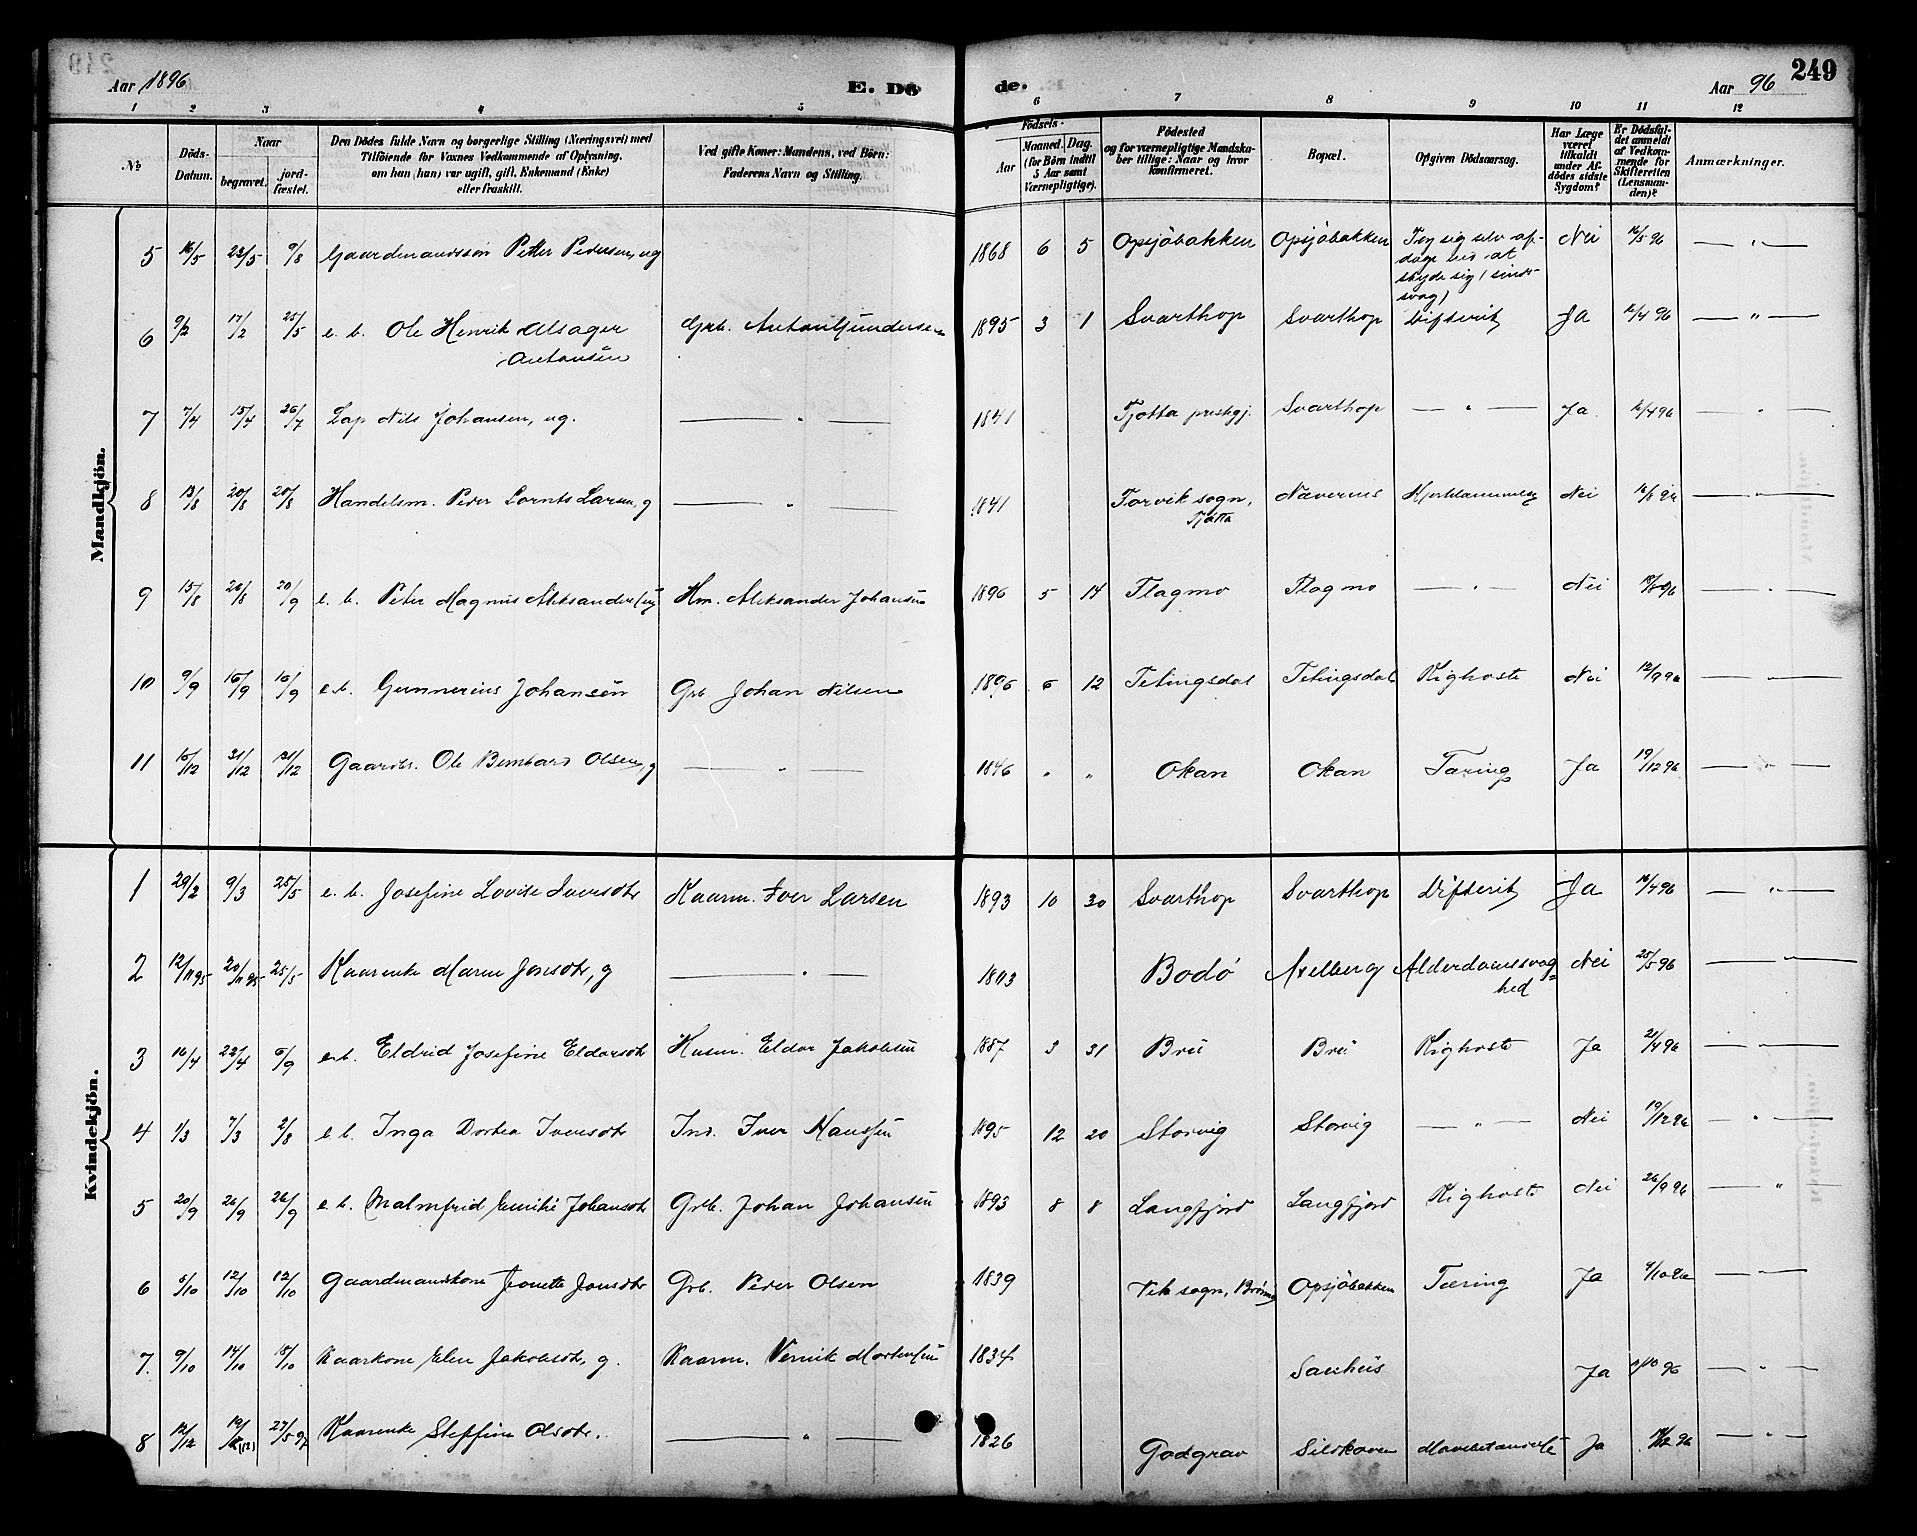 249
Aar 1896 E. Dö de. Aar 96
1 2 3 4 5 6 7 8 9 10 11 12
№ Döds-Datum. Naar begravet. jord-fæstet. Den Dödes fulde Navn og borgerlige Stilling (Næringsvei) med Tilföiende for Voxnes Vedkommende af Oplysning, om han (hun) var ugift, gift, Enkemand (Enke) eller fraskilt. Ved gifte Koner: Mandens, ved Börn: Faderens Navn og Stilling. Födsels- Aar Maaned. Dag. (for Börn indtil 5 Aar samt Værnepligtige). Födested og for værnepligtige Mandskaber tillige: Naar og hvor konfirmeret. Bopæl. Opgiven Dödsaarsag. Har Læge været tilkaldt under Afdödes sidste Sygdom? Er Dödsfaldet anmeldt af Vedkommende for Skifteretten (Lensmanden)? Anmærkninger.
Mandkjön.
5 16/5 23/5 9/8 Gaardmandssön Petter Pedersen, ug 1868 6 5 Opsjöbakken Opsjöbakken Tog sig selv af-dage ved at skyde sig (sinds-svag) Nei 16/5 96 — " —
6 9/2 17/2 25/5 e. b. Ole Henrik Alsager Antonsen Grb. Anton Gundersen 1895 3 1 Svarthop Svarthop Difterit Ja 16/4 96 — " —
7 7/4 15/4 26/7 Lap Nils Johansen, ug. — " — 1841 Tjötta prestgj. Svarthop — " — Ja 16/4 96 — " —
8 13/8 20/8 20/8 Handelsm. Peder Lornts Larsen, g — " — 1841 Forvik sogn, Tjötta Nævernes Nei — " —
9 15/8 20/8 20/9 e. b. Peter Magnus Aleksandersen Hm. Aleksander Johansen 1896 5 14 Flagmo Flagmo — " — Nei — " —
10 9/9 16/9 16/9 e. b. Gunnerius Johansen Grb Johan Nilsen 1896 6 12 Tetingsdal Tetingsdal Kighoste Nei 12/9 96 — " —
11 15/12 31/12 31/12 Gaardbr. Ole Bernhard Olsen, g — " — 1846 " " Okan Okan Tæring Ja 19/12 96 — " —
Kvindekjön.
1 29/2 9/3 25/5 e. b. Josefine Lovise Iversdtr Kaarm. Iver Larsen 1893 10 30 Svarthop Svarthop Difterit Ja 16/4 96 — " —
2 12/11 95 20/11 95 25/5 Kaarenke Maren Jonsdtr, g — " — 1813 Bodö Axelberg Alderdomssvag=hed Nei 25/5 96 — " —
3 16/4 22/4 6/9 e. b. Eldrid Josefine Eldorsdtr Husm. Eldor Jakobsen 1887 3 31 Brü Brü Kighoste Ja 21/4 96 — " —
4 1/3 7/3 2/8 e. b. Inga Dortea Iversdtr Ind. Iver Hanssen 1895 12 20 Storvig Storvig — " — Nei 19/12 96 — " —
5 20/9 26/9 26/9 e. b. Malmfrid Emilie Johansdtr Grb. Johan Johansen 1893 8 8 Langfjord Langfjord Kighoste Nei 26/9 96 — " —
6 5/10 12/10 12/10 Gaardmandskone Jonette Jonsdtr Grb. Peder Olsen 1839 Vik sogn, Brönnö Opsjöbakken Tæring Ja 9/10 96 — " —
7. 9/10 14/10 18/10 Kaarkone Elen Jakobsdtr, g. Kaarm. Mortensen 1834 Sauhüs Ja — " —
8 12/12 19/12 27/5 97 Kaarenke Steffine Olsdtr. — " — 1826 Godgrav Silskoven Ja — " —